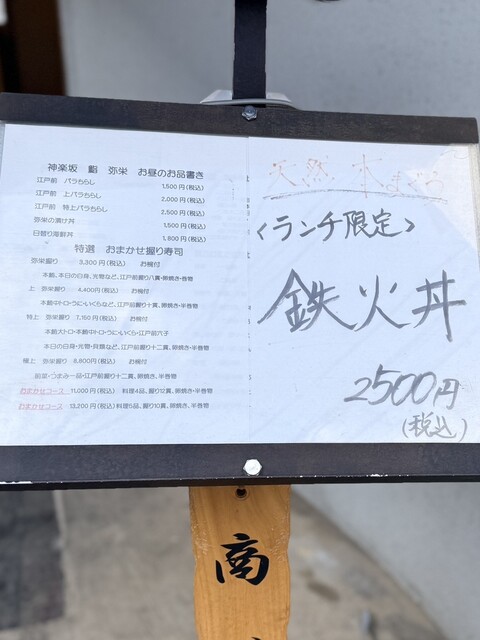 神楽坂 鮨 弥栄 お昼のお品書き
江戸前 バラちらし 1,500円(税込)
江戸前 上バラちらし 2,000円(税込)
江戸前 特上バラちらし 2,500円(税込)
弥栄の漬け丼 1,500円(税込)
日替り海鮮丼 1,600円(税込)
特選 おまかせ握り寿司
弥栄握り 3,300円(税込) お椀付
本鮪、本日の白身、光物など、江戸前握り八貫・卵焼き・半巻物
上 弥栄握り 4,400円(税込) お椀付
本鮪中トロ・うに・いくらなど、江戸前握り十貫、卵焼き・半巻物
特上 弥栄握り 7,150円(税込) お椀付
本鮪大トロ・本鮪中トロ・うに・いくら・江戸前穴子
本日の白身・光物・貝類など、江戸前握り十二貫、卵焼き、半巻物
極上 弥栄握り 8,800円(税込) お椀付
前菜・つまみ一品・江戸前握り十二貫、卵焼き、半巻物
おまかせコース 11,000円(税込) 料理4品、握り12貫、卵焼き・半巻物
おまかせコース 13,200円(税込) 料理5品、握り10貫、卵焼き、半巻物
天然 本まぐろ
<ランチ限定>
鉄火丼
2500円
(税込)
商